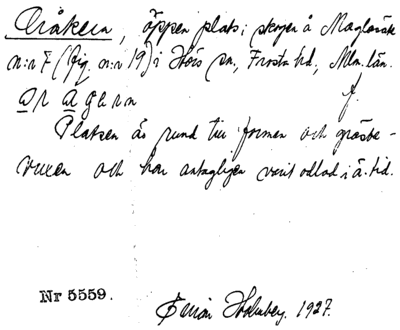 Oråkern, öppen plats i skogen å Maglasäte
n:r 7 (fig. n:r 19) i Hörs sn, Frosta hd, Mlm. län.
f.
Platsen är rund till formen och gräsbe-
vuxen och har antagligen varit odlad i ä. tid.
Nr 5559.
Holmberg. 1927.